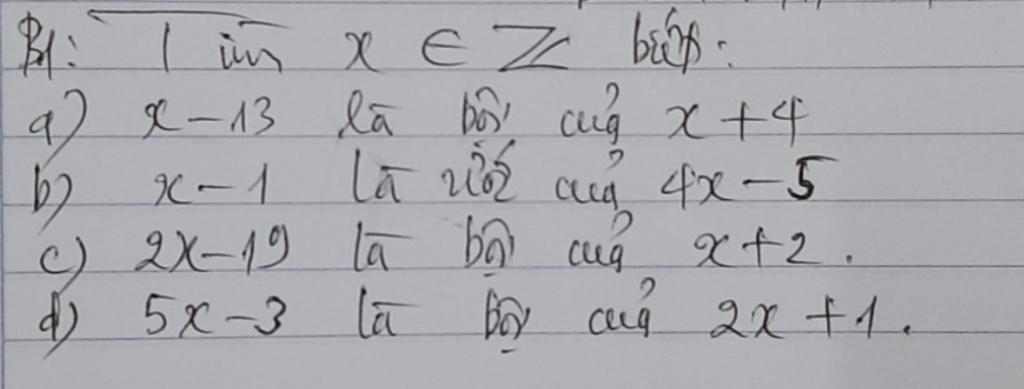 B1: Tìm x ∈ ℤ biết:
a) x - 13 là bội của x + 4
b) x - 1 là ước của 4x - 5
c) 2x - 19 là bội của x + 2.
d) 5x - 3 là bội của 2x + 1.